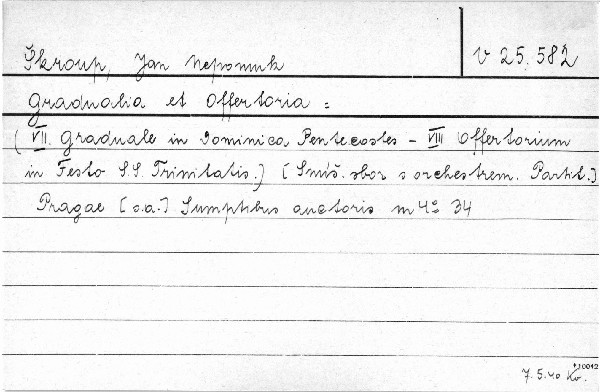 Škroup, Jan Nepomuk
V 25.582
Gradualia et Offertoria :
( VII. Graduale in Dominica Pentecostes - VIII Offertorium
in Festo S.S. Trinitatis.) [Smíš. sbor s orchestrem. Partit.]
Pragae [s.a.] Sumptibus auctoris m 4º 34
7.5.40 Kv.